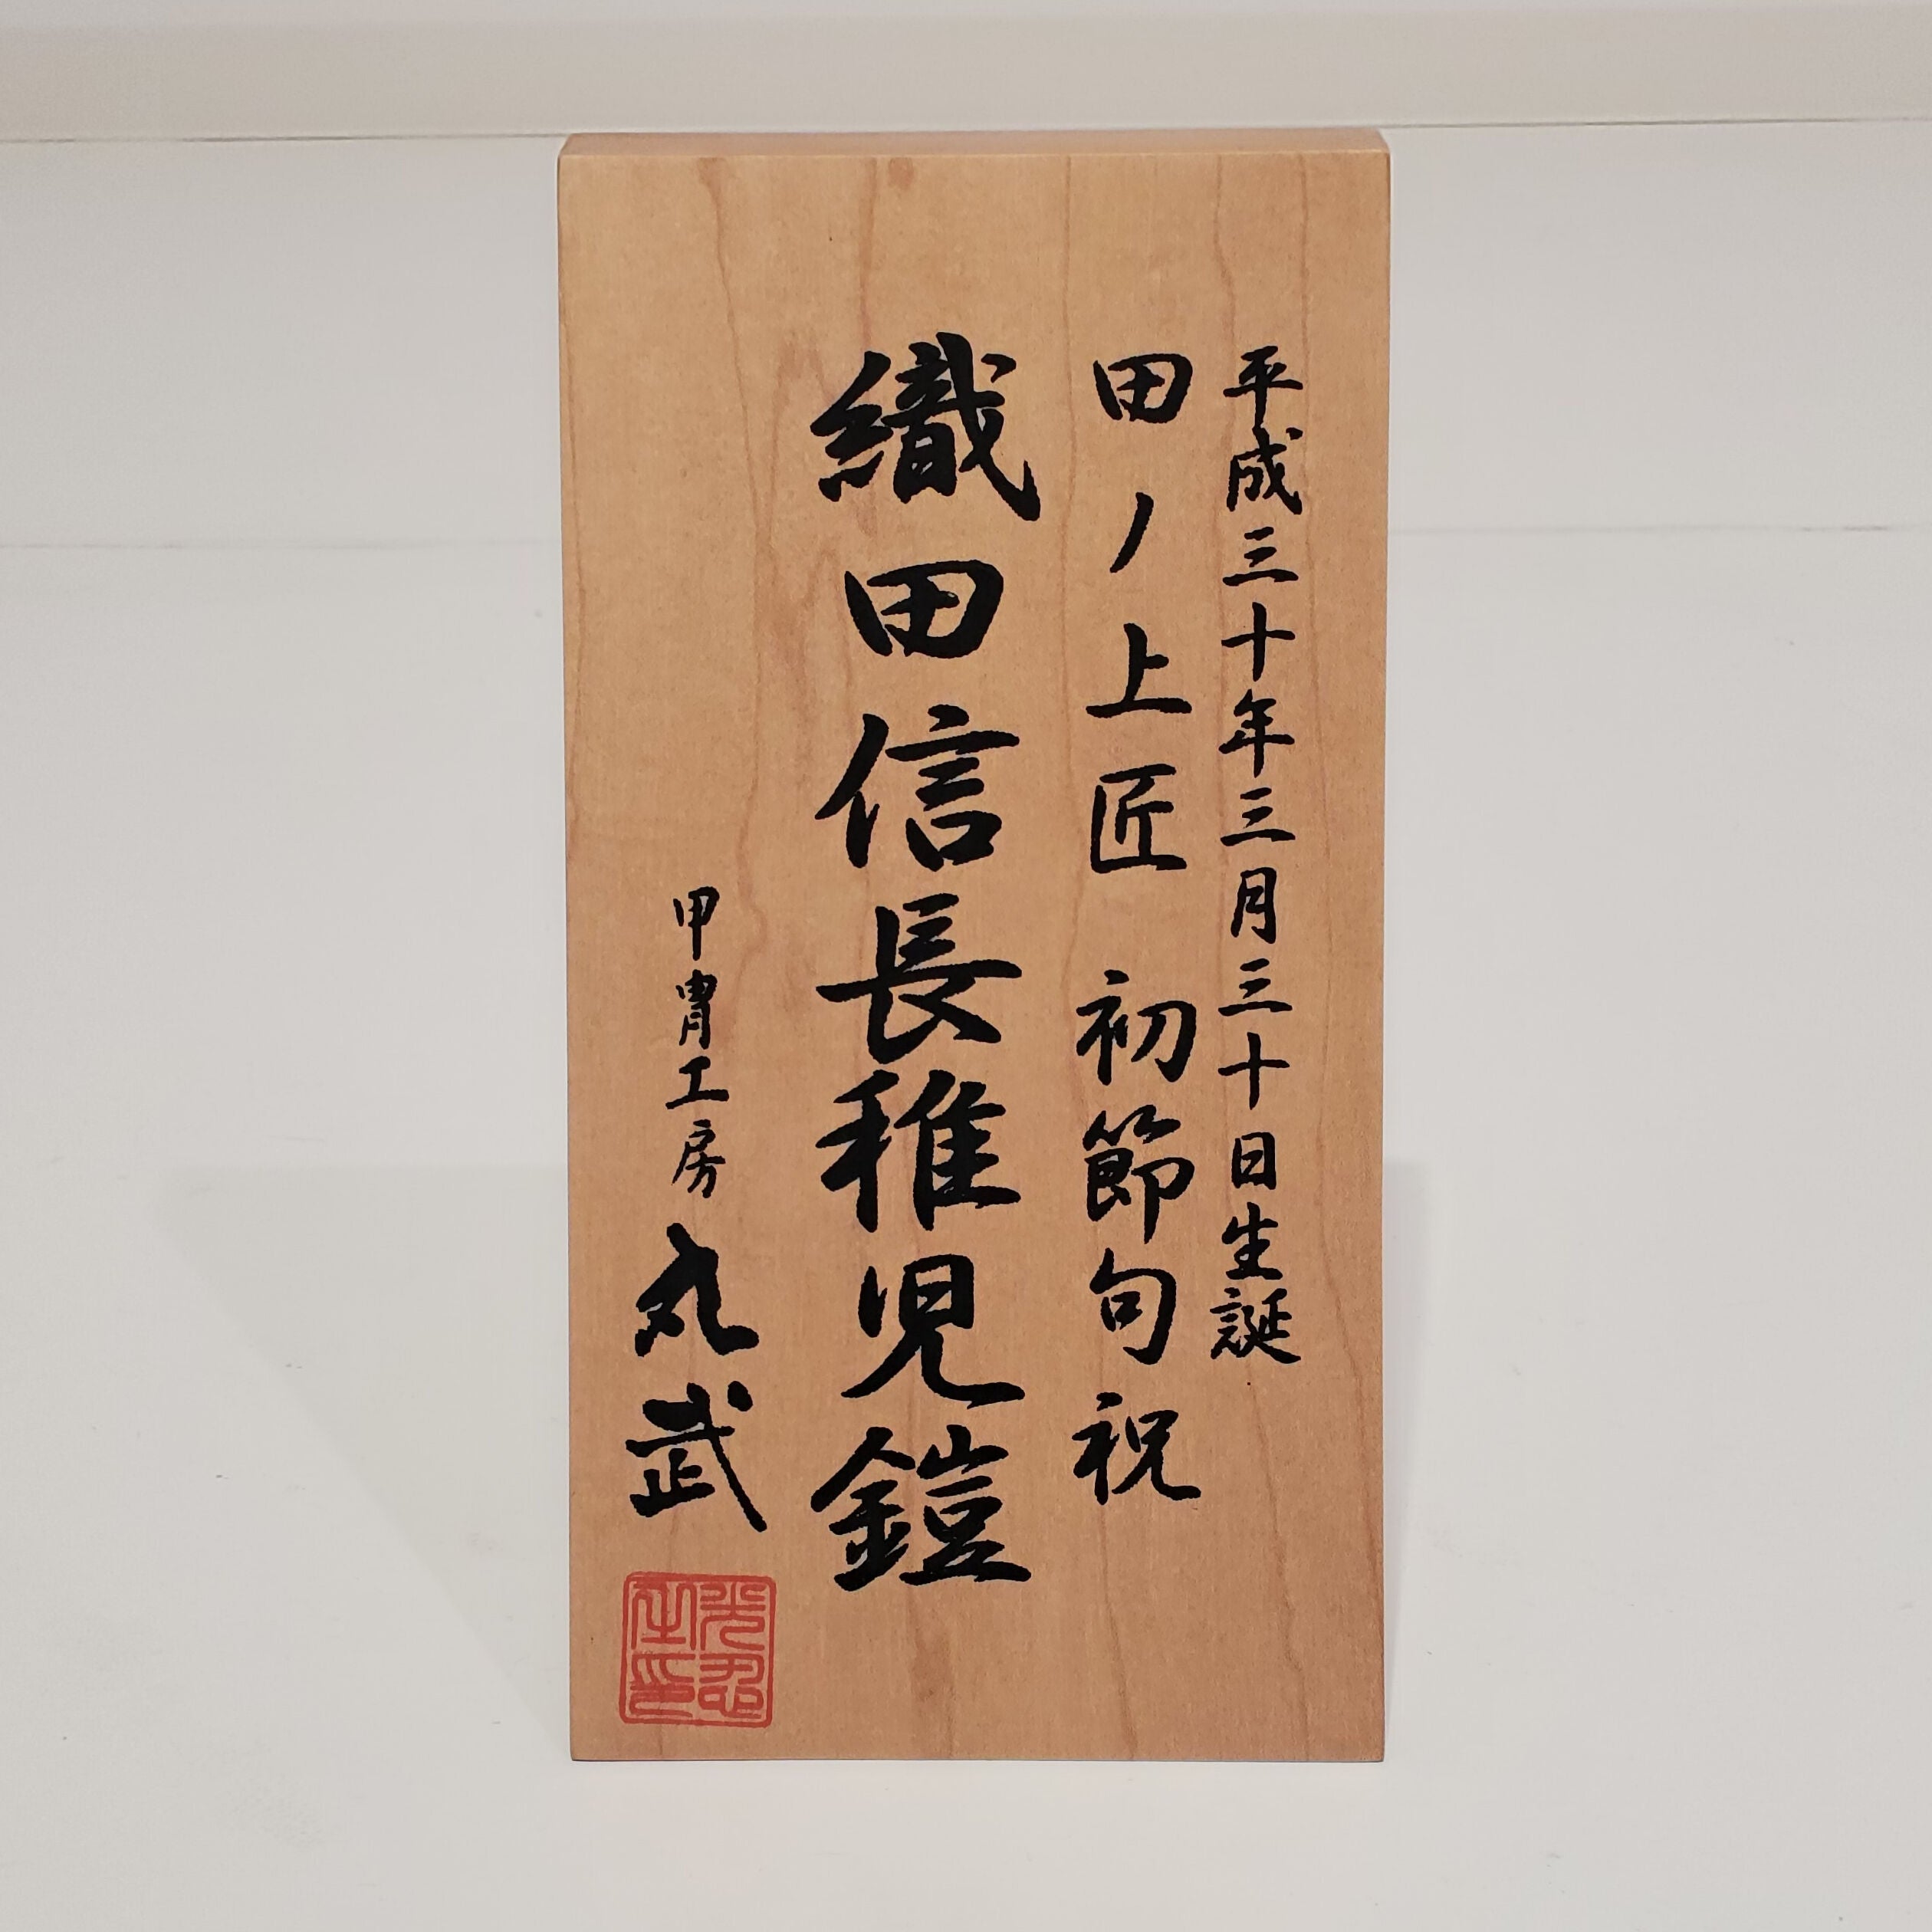 平成三十年三月三十日生誕
田ノ上匠 初節句祝
織田信長稚児鎧
甲冑工房 丸武